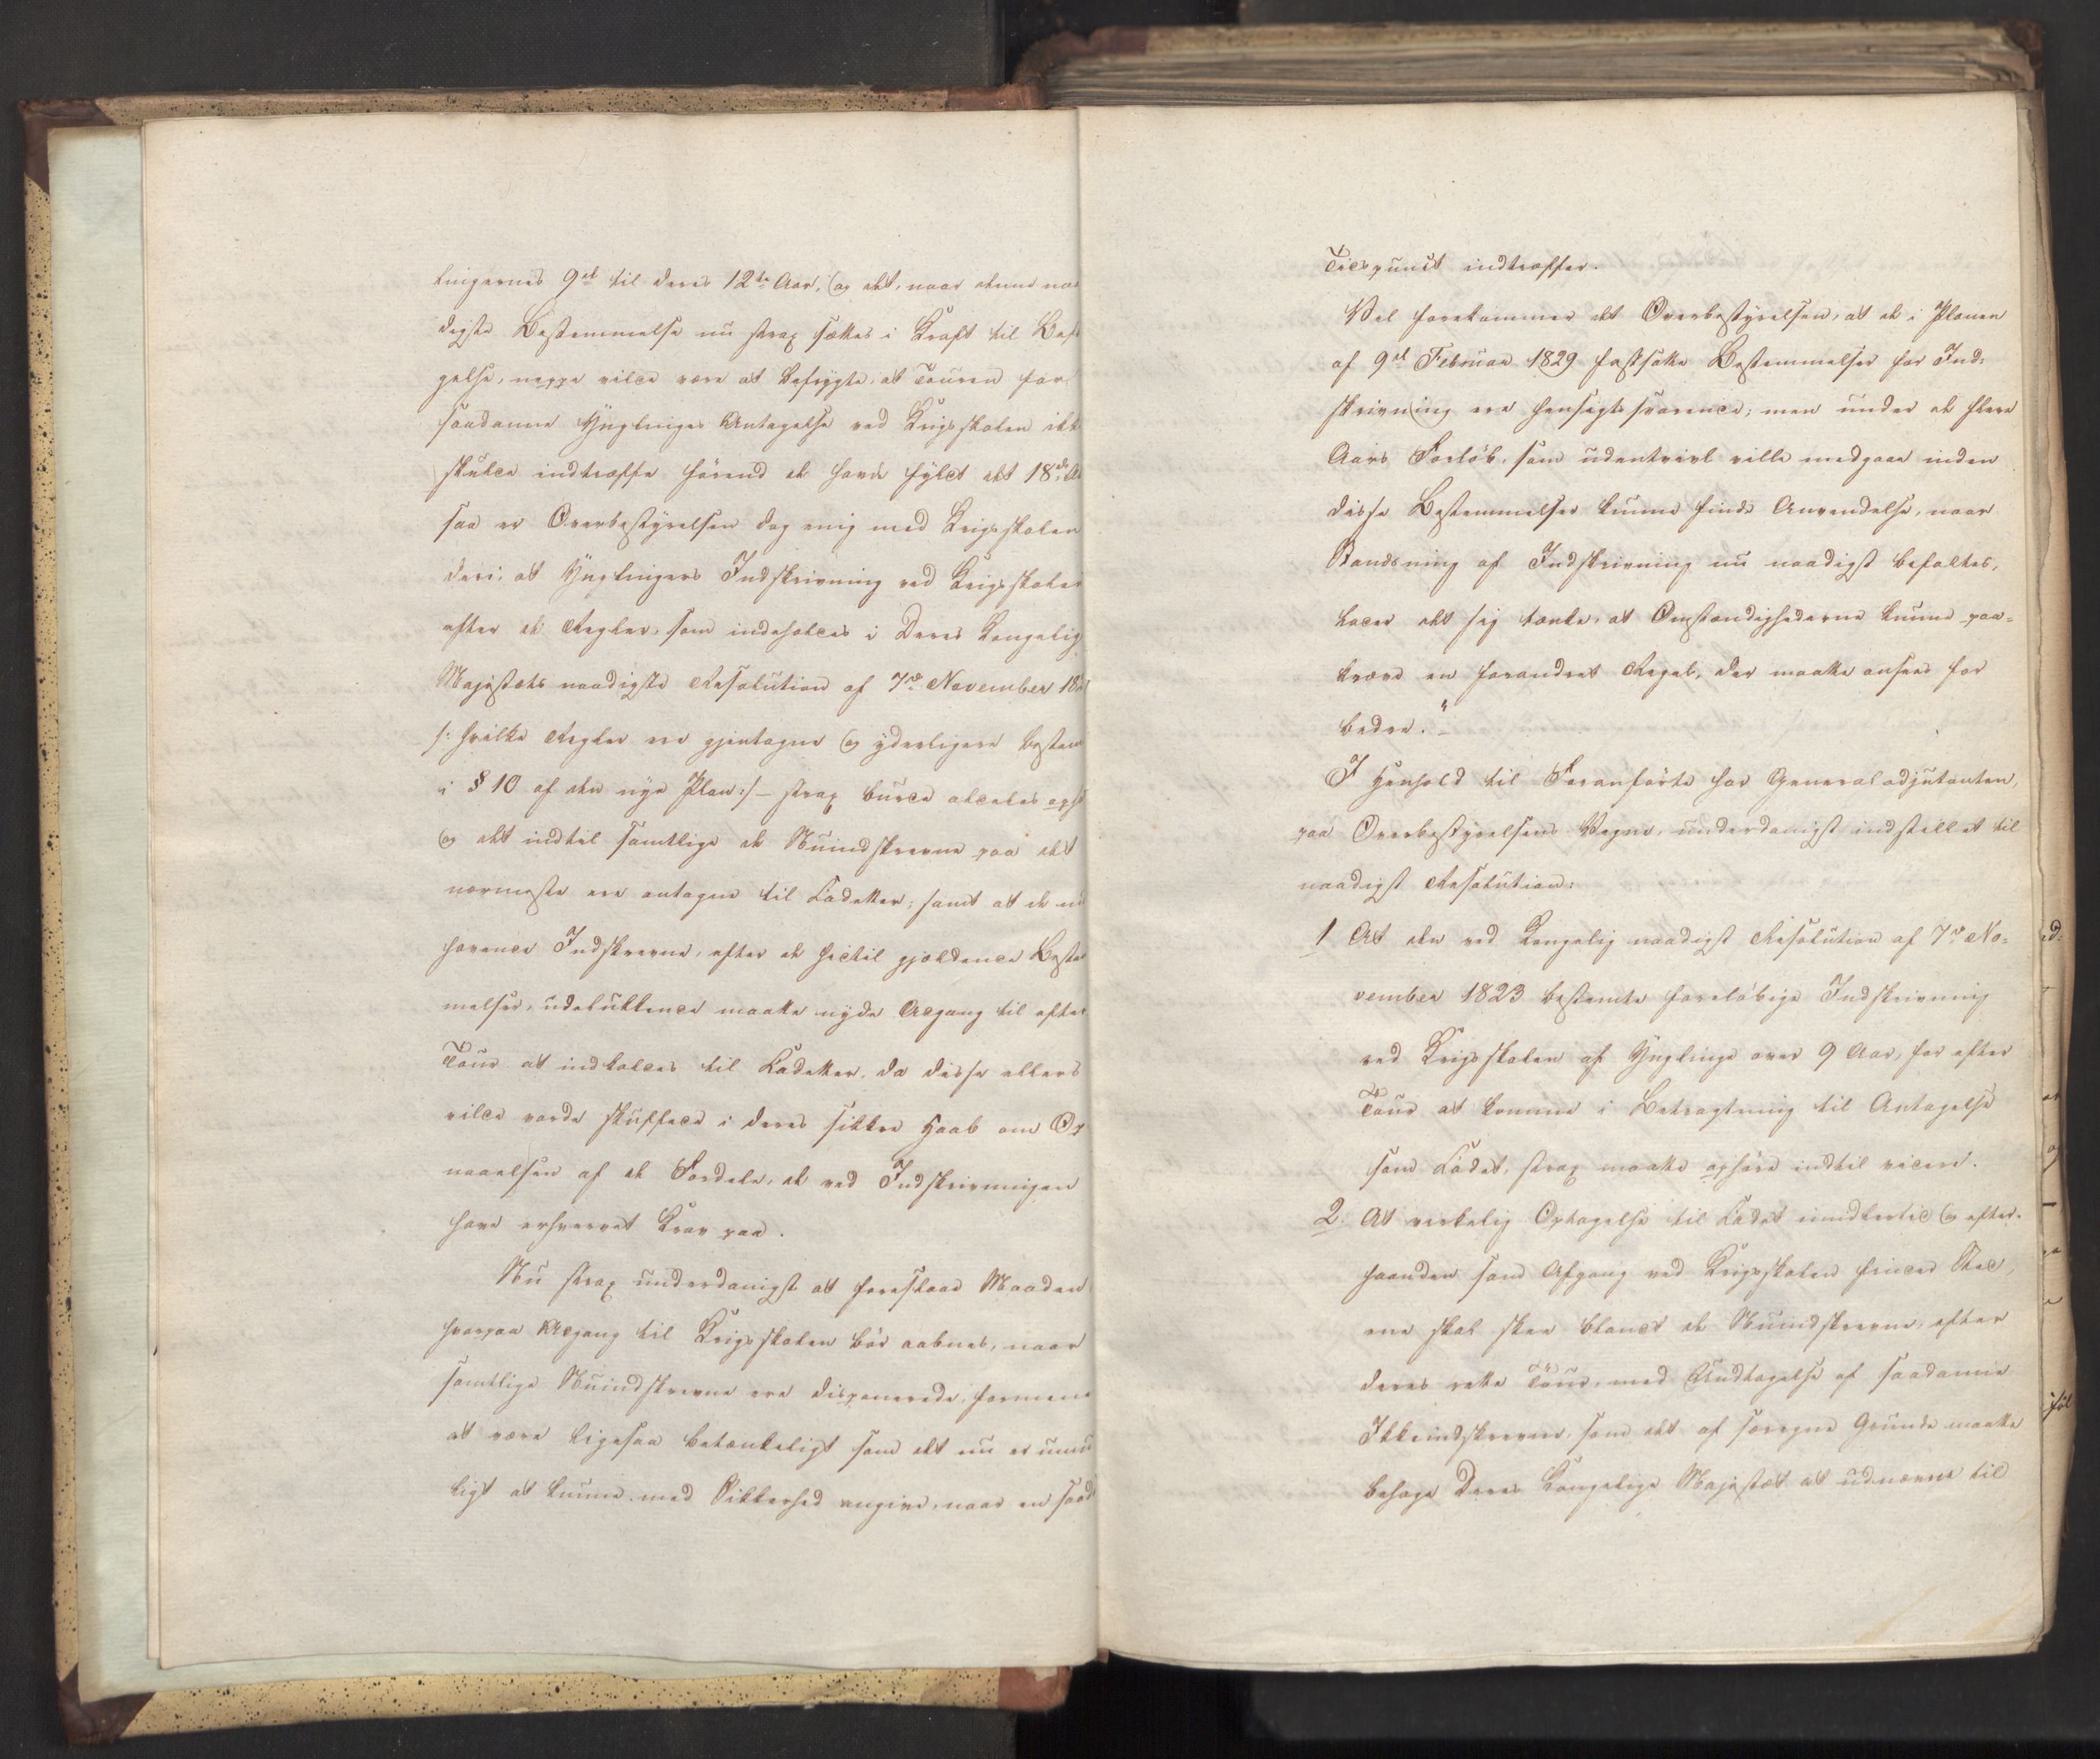 lingernes 9de til deres 12te Aar, og det, naar denne naa
digste Bestemmelse nu strax sættes i Kraft til Bef
gelse, neppe vilde være at befrygte, at Touren for
saadanne Ynglinges Antagelse ved Krigsskolen ikk
skulde indtræffe førend de havde fyldt det 18de A
saa er Overbestyrelsen dog enig med Krigsskolen
deri, at Ynglingers Indskrivning ved Krigsskolen
efter de Regler, som indeholdes i Deres Kongelig
Majestæts naadigste Resolution af 7de November 18
/: hvilke Regler ere gjentagne og yderligere bestem
i § 10 af den nye Plan :/ – strax burde aldeles oph
og det indtil samtlige de Nuindskrevne paa det
nærmeste ere antagne til Cadetter; samt at de nu
havende Indskrevne, efter de hidtil gjældende Beste
melser, udelukkende maatte nyde Adgang til efter
Tour at indkaldes til Cadetter, da disse ellers
vilde vorde skuffede i deres sikkre Haab om Op
naaelsen af de Fordele, de ved Indskrivningen
have erhvervet Krav paa.
Nu strax underdanigst at foreslaae Maaden
hvorpaa Adgang til Krigsskolen bør aabnes, naar
samtlige Nuindskrevne ere disponerede, formene
at være ligesaa betænkeligt som det nu er umu
ligt at kunne med Sikkerhed angive, naar en saad
Tidspunct indtræffer.
Vel forekommer det Overbestyrelsen, at de i Planen
af 9de Februar 1829 fastsatte Bestemmelser for Ind-
skrivning ere hensigtssvarende; men under de flere
Aars Forløb, som udentvivl ville medgaae inden
disse Bestemmelser kunne finde Anvendelse, naar
Standsning af Indskrivning nu naadigst befaltes,
lader det sig tænke, at Omstændighederne kunne paa-
kræve en forandret Regel, der maatte ansees for
bedre." –
I Henhold til Foranførte har Generaladjutanten,
paa Overbestyrelsens Vegne, underdanigst indstillet til
naadigst Resolution:
1 At den ved Kongelig naadigst Resolution af 7de No-
vember 1823 bestemte foreløbige Indskrivning
ved Krigsskolen af Ynglinge over 9 Aar, for efter
Tour at komme i Betragtning til Antagelse
som Cadet, strax maatte ophøre indtil videre.
2. At virkelig Optagelse til Cadet imidlertid og efter-
haanden som Afgang ved Krigsskolen finder Sted,
ene skal skee blandt de Nuindskrevne, efter
deres rette Tour, med Undtagelse af saadanne
Ikkeindskrevne, som det af særegne Grunde maatte
behage Deres Kongelige Majestæt at udnævne til